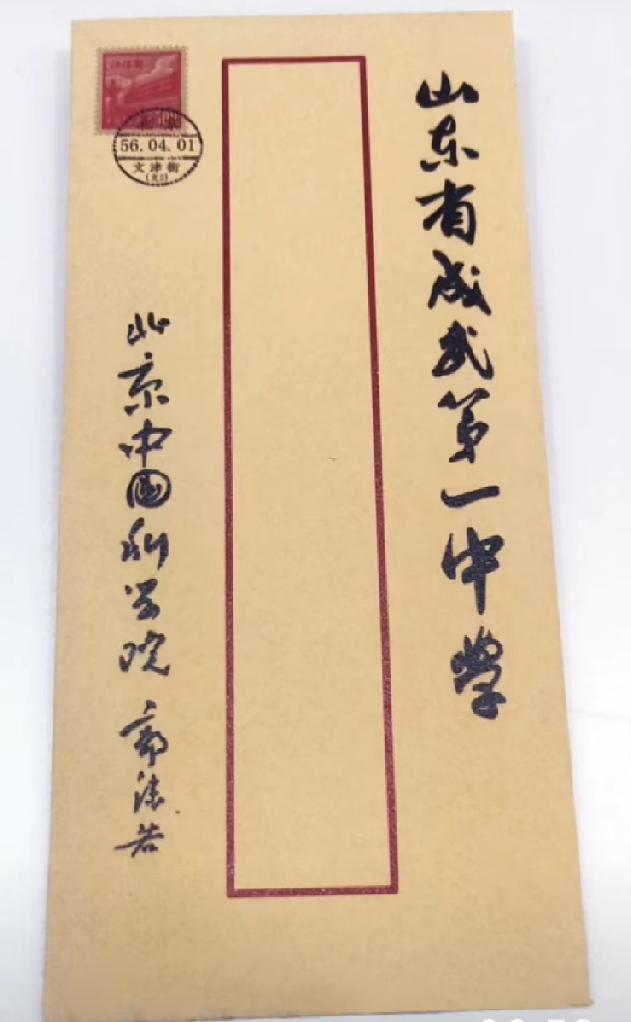 山东省成武第一中学
56.04.01
文津街
北京中国科学院 郭沫若